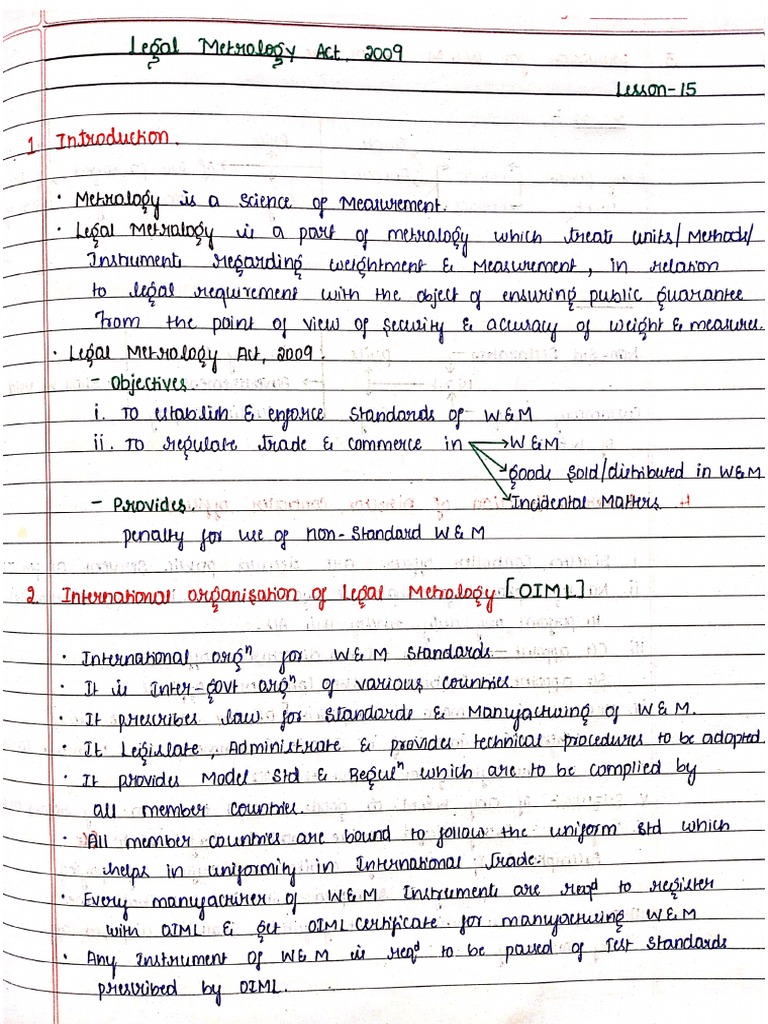 Legal Metrology Act, 2009
Lesson-15
1 Introduction.
· Metrology is a science of Measurement.
· Legal Metrology is a part of metrology which treats units/Methods/
Instruments regarding weightment & Measurement, in relation
to legal requirement with the object of ensuring public guarantee
from the point of view of security & accuracy of weight & measures.
· Legal Metrology Act, 2009.
- Objectives.
i. To establish & enforce standards of W&M
ii. To regulate trade & commerce in → W&M
→ Goods sold/distributed in W&M
→ Incidental Matters.
- Provides.
penalty for use of non-Standard W&M
2. International organisation of Legal Metrology [OIML]
· International orgⁿ for W&M Standards.
· It is Inter-govt orgⁿ of various countries.
· It prescribes law for standards & Manufacturing of W&M.
· It Legislate, Administrate & provides technical procedures to be adopted
· It provides Model Std & Regulⁿ which are to be complied by
all member countries.
· All member countries are bound to follow the uniform std which
helps in uniformity in International Trade.
· Every manufacturer of W&M Instruments are reqᵈ to register
with OIML & get OIML certificate for manufacturing W&M
· Any Instrument of W&M is reqᵈ to be passed of Test Standards
prescribed by OIML.